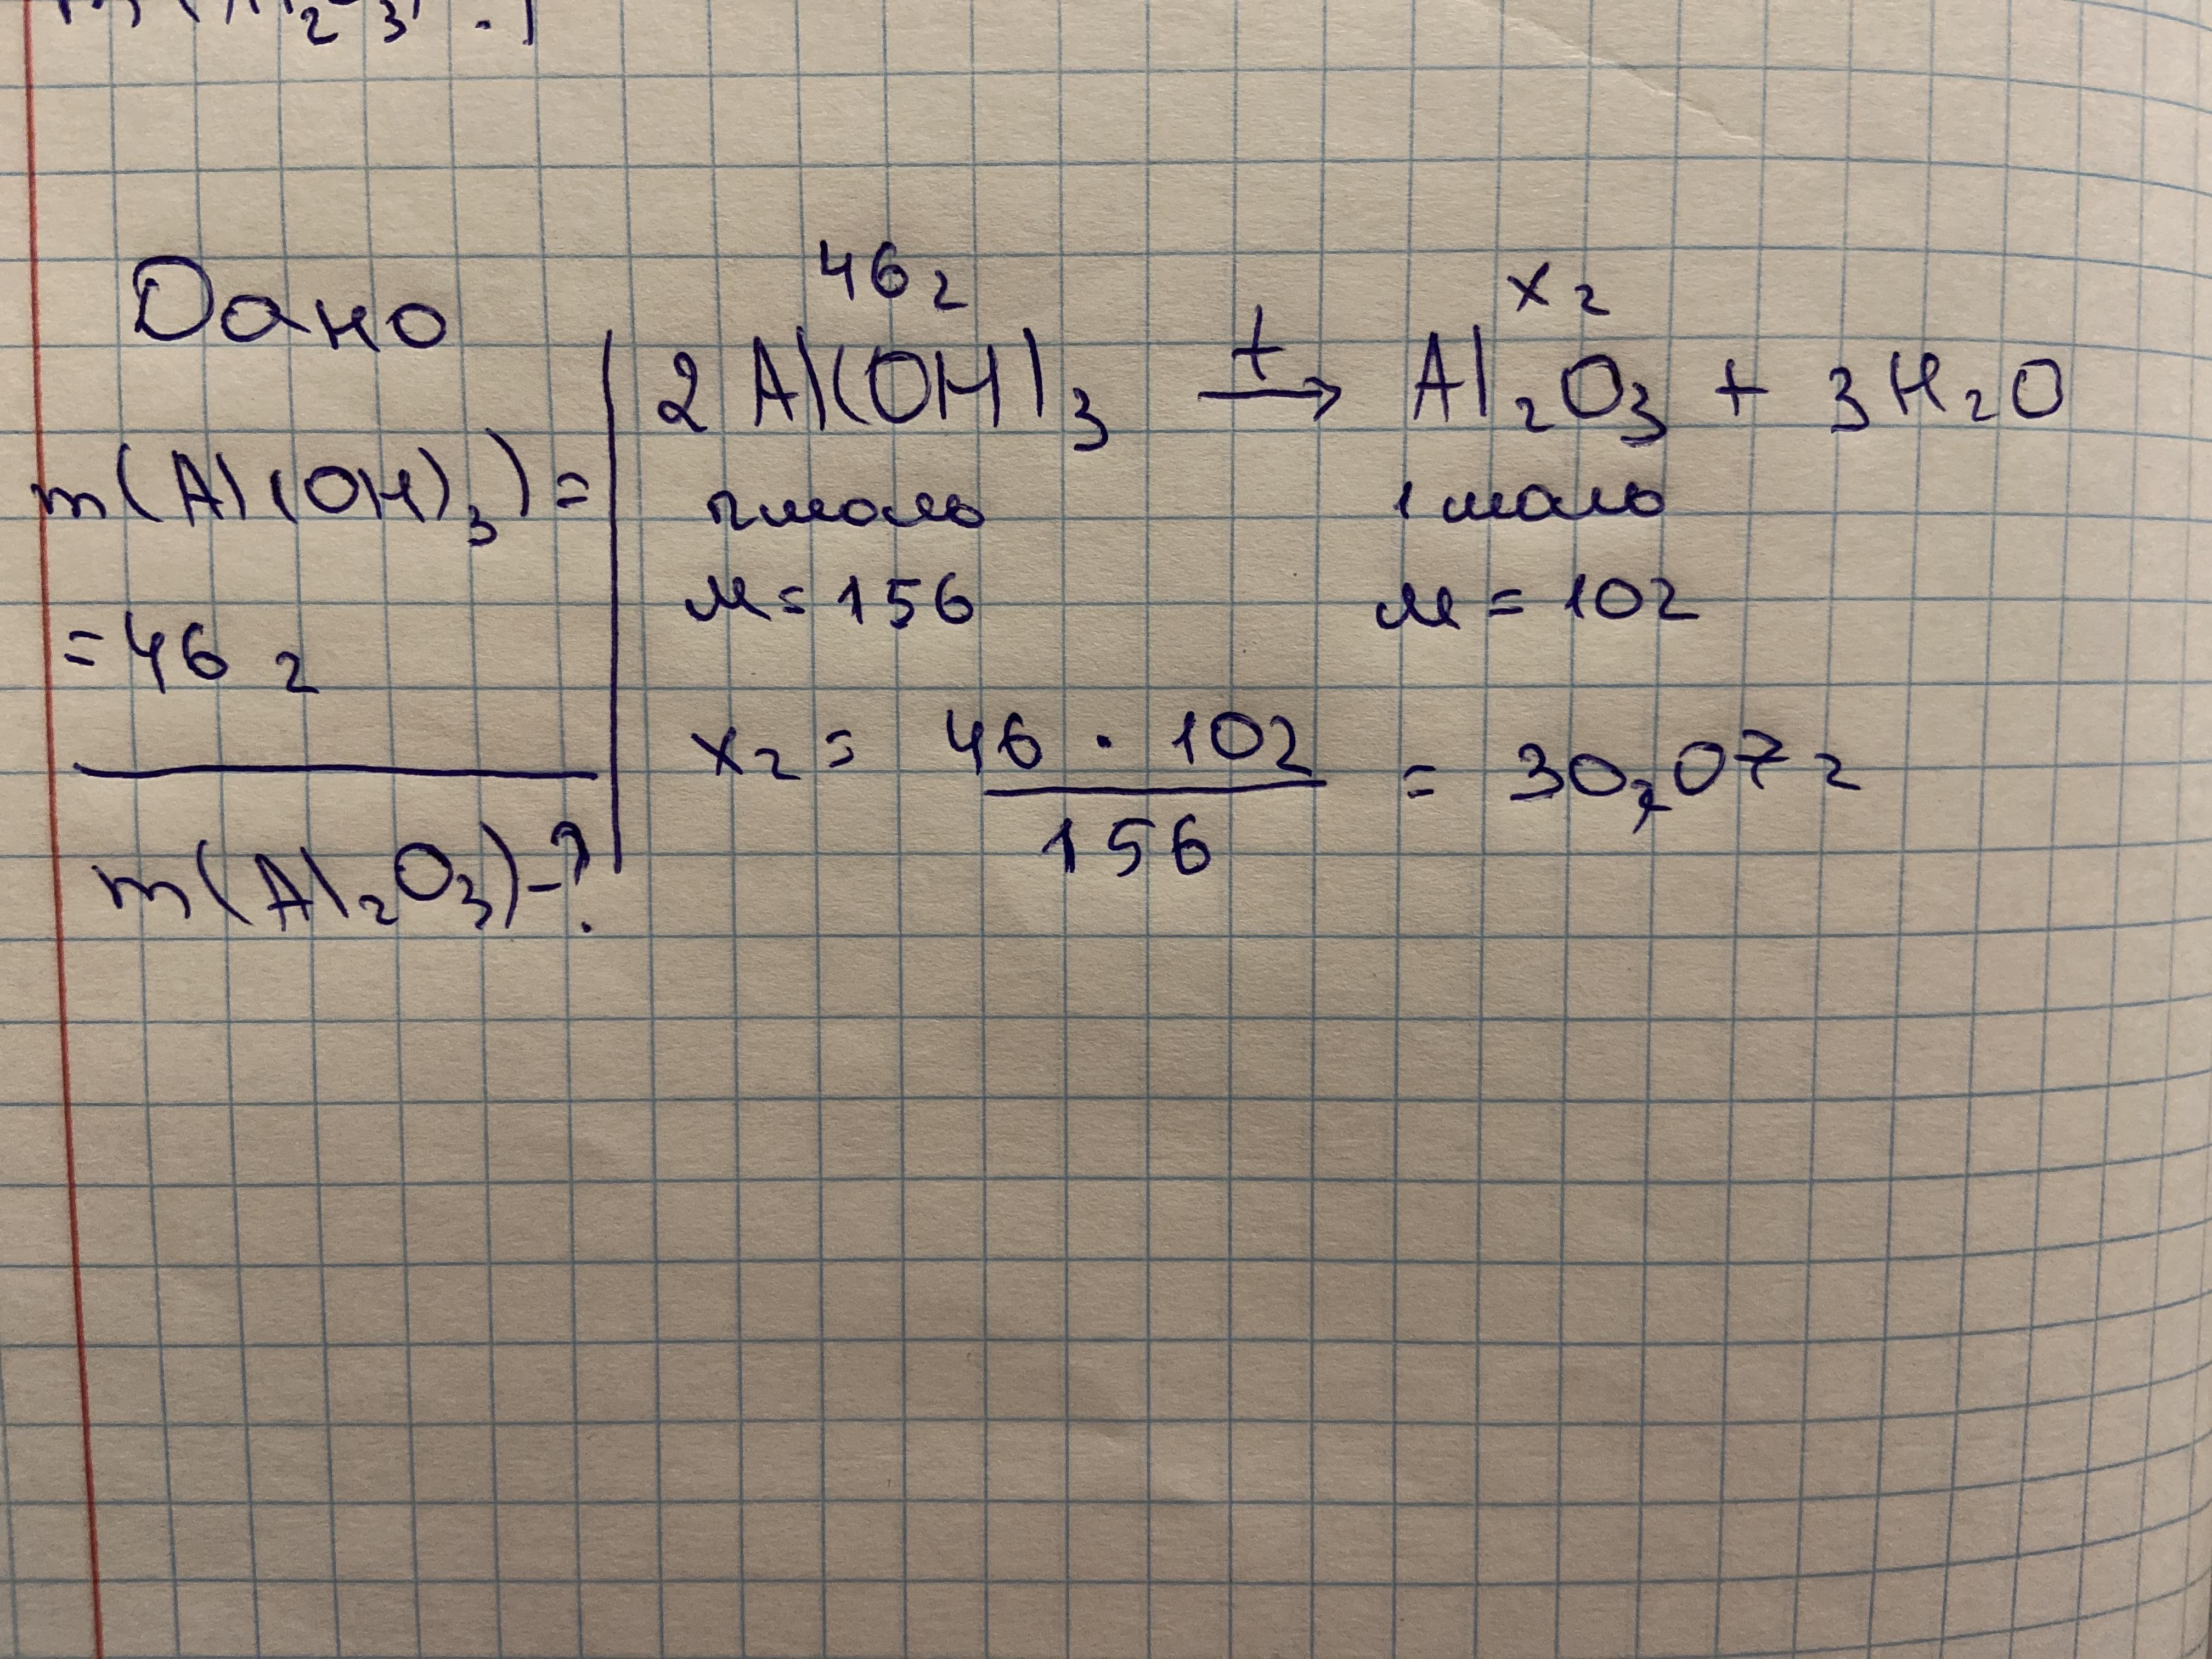 Дано
m(Al(OH)3)=
=46 г
m(Al2O3)-?
46 г x г
2 Al(OH)3 t→ Al2O3 + 3H2O
2моль 1 моль
М=156 М=102
x г = 46 · 102 / 156 = 30,07 г